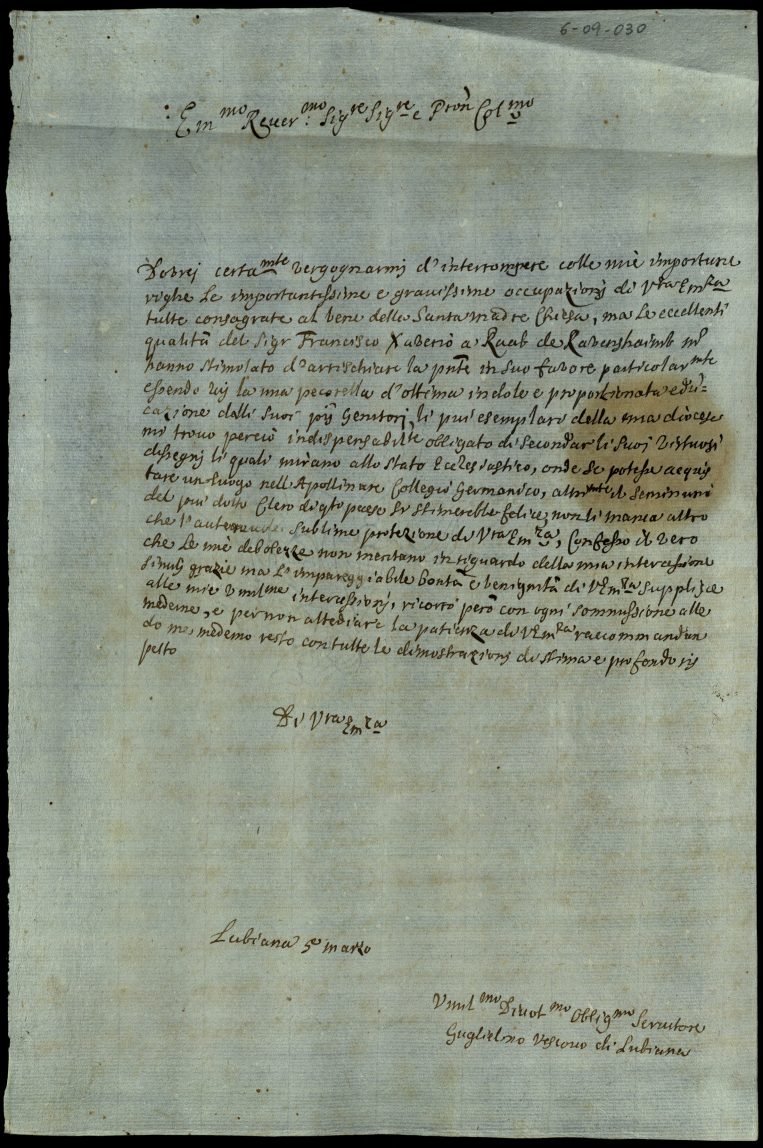 6-09-030
Em mo Rever: mo Sigre Sigre e Pron Col mo
Dovrej certa mte vergognarmj d'interrompere colle mie importune
righe le importantissime e gravissime occupazionj di Vra Emza
tutte consagrate al bene della Santa madre Chiesa, ma le eccellenti
qualità del Sigr Francesco Xaverio a Raab de Ravenshaimb mi
hanno stimolato d'arrischiare la pnte in suo favore particolar mte
essendo la mia pecorella d'ottima indole e proportionata edu-
cazione dalli suoi pij Genitorj, li piu esemplare della mia diocese
mi trovo perciò indispensabilte obligato di secondar li suoi virtuosi
dissegnj li quali mirano allo stato Ecclesiastico, onde se potesse acquis
tare un luogo nell Apollinare Collegio Germanico, altri il seminuri
del piu dotto Clero di qto paese si stimerebbe felice; non li manca altro
che l'autorevole sublime protezione di Vra Emza, Confesso il vero
che le mie debolezze non meritano in riguardo della mia intercessione
similj grazie ma l'impareggiabile bontà e benignità di V Emza supplisce
alle mie vmilme intercessionj, ricorro però con ogni sommissione alle
medeme, e per non attediare la patienza di V Emza raccommandan
do me medemo resto con tutte le dimostrazionj di stima e profondo ris
petto
Di Vra Emza
Lubiana 5 marzo
Vmil mo Divot mo Oblig mo Servitore
Guglielmo Vescovo di Lubiana